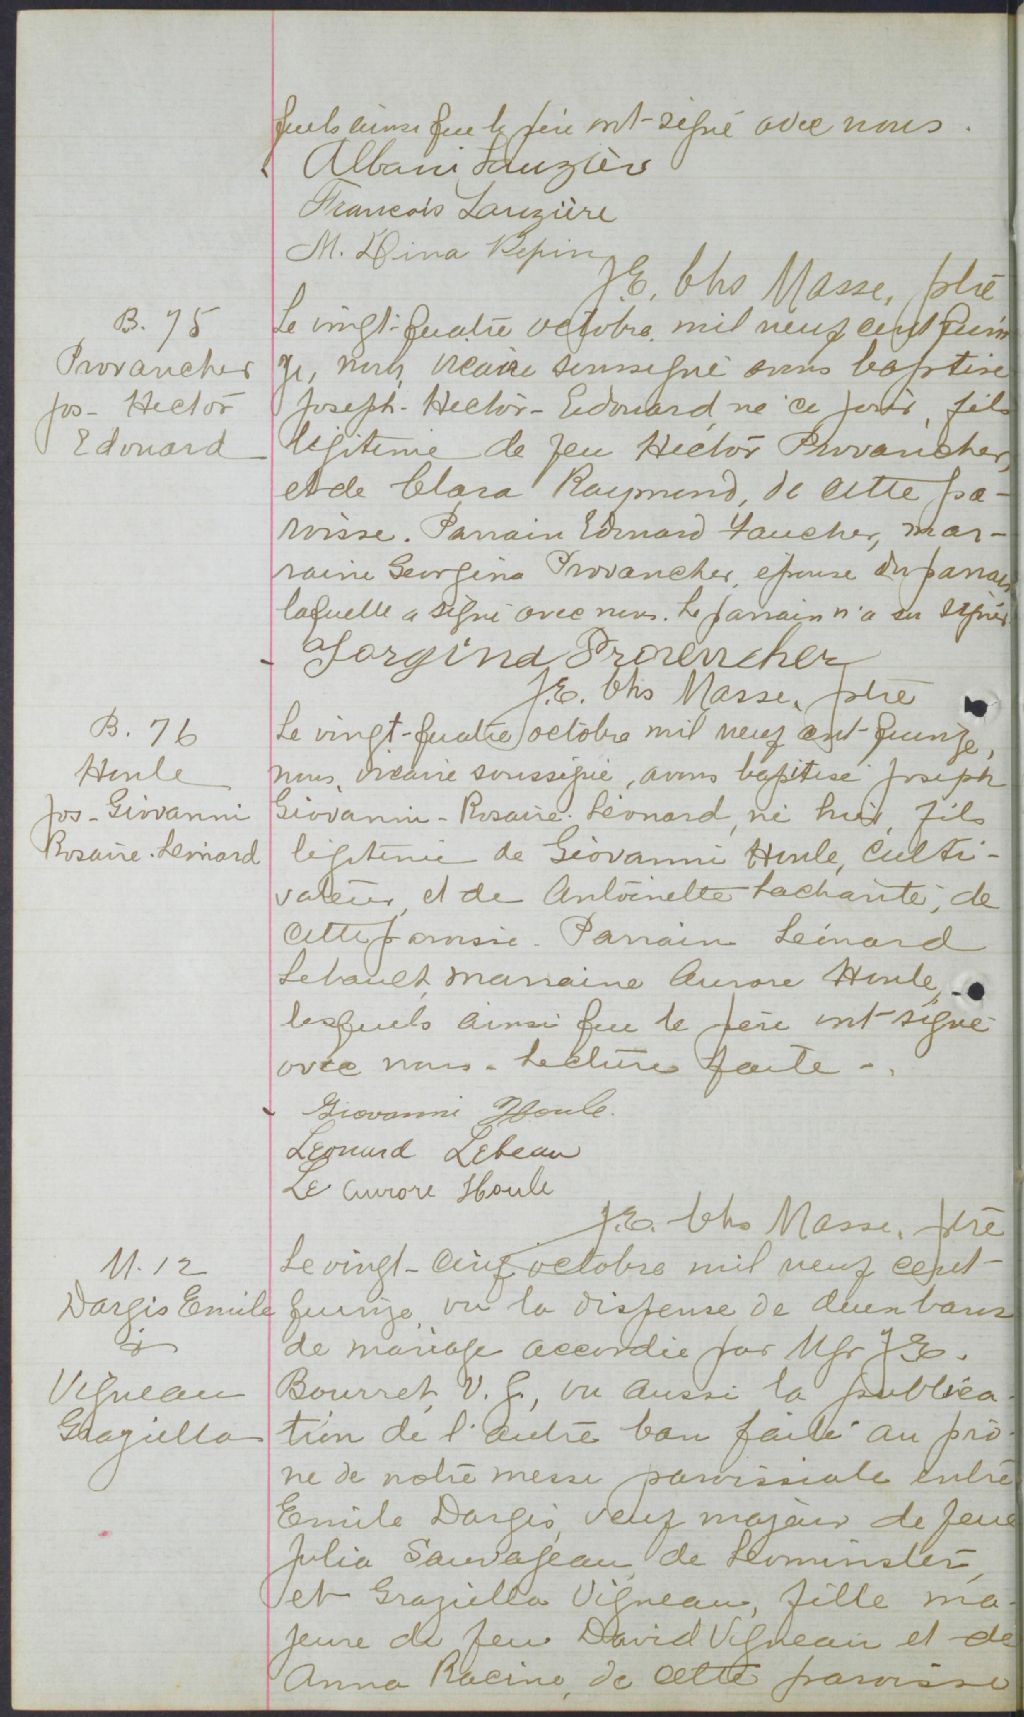 quels ainsi que le père ont signé avec nous.
Albani Lauzière
François Lauzière
M. Dina Pepin
J.E. Chs Masse, ptre
B. 75
Provancher
Jos- Hector
Edouard
Le vingt-quatre octobre mil neuf cent quin
ze, nous, vicaire soussigné avons baptisé
Joseph-Hector-Edouard, né ce jour, fils
légitime de feu Hector Provancher,
et de Clara Raymond, de cette pa-
roisse. Parrain Edouard Faucher, mar-
raine Georgina Provancher, épouse du parrain
laquelle a signé avec nous. Le parrain n'a su signer
Jorgina Provencher
J.E. Chs Masse, ptre
B. 76
Houle
Jos-Giovanni
Rosaire-Léonard
Le vingt-quatre octobre mil neuf cent quinze,
nous, vicaire soussigné, avons baptisé Joseph
Giovanni-Rosaire-Léonard, né hier, fils
légitime de Giovanni Houle, culti-
vateur, et de Antoinette Lacharité, de
cette paroisse. Parrain Léonard
Lebault, marraine Aurore Houle,
lesquels ainsi que le père ont signé
avec nous. Lecture faite -.
Giovanni Houle.
Leonard Lebeau
Aurore Houle
J.E. Chs Masse, ptre
M. 12
Dargis Emile
&
Vigneau
Graziella
Le vingt-cinq octobre mil neuf cent
quinze, vu la dispense de deux bans
de mariage accordée par Mgr J.E.
Bourret, V.G., vu aussi la publica-
tion de l'autre ban faite au prô-
ne de notre messe paroissiale entre
Emile Dargis, veuf majeur de feue
Julia Sauvageau, de Leominster,
et Graziella Vigneau, fille ma-
jeure de feu David Vigneau et de
Anna Racine, de cette paroisse